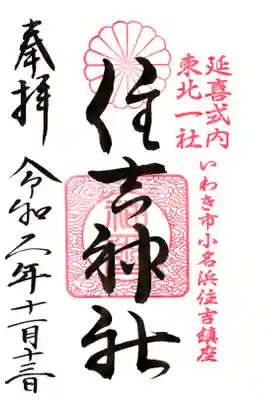 延喜式内
東北一社
いわき市小名浜住吉鎮座
住吉神社
奉拝
令和二年十二月十三日